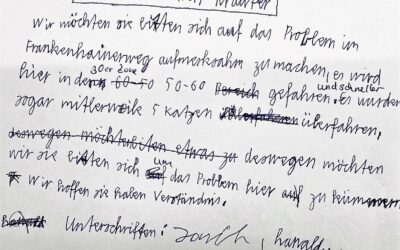 Wir möchten sie bitten sich auf das Problem im
Frankenhainerweg aufmerksahm zu machen, es wird
hier in der 30er Zone 50-60 gefahren und schneller. Es wurden
sogar mitlerweile 5 Katzen überfahren,
deswegen möchten
wir sie bitten sich um das Problem hier zu kümmern.
* Wir hoffen sie haben Verständnis.
Unterschriften: